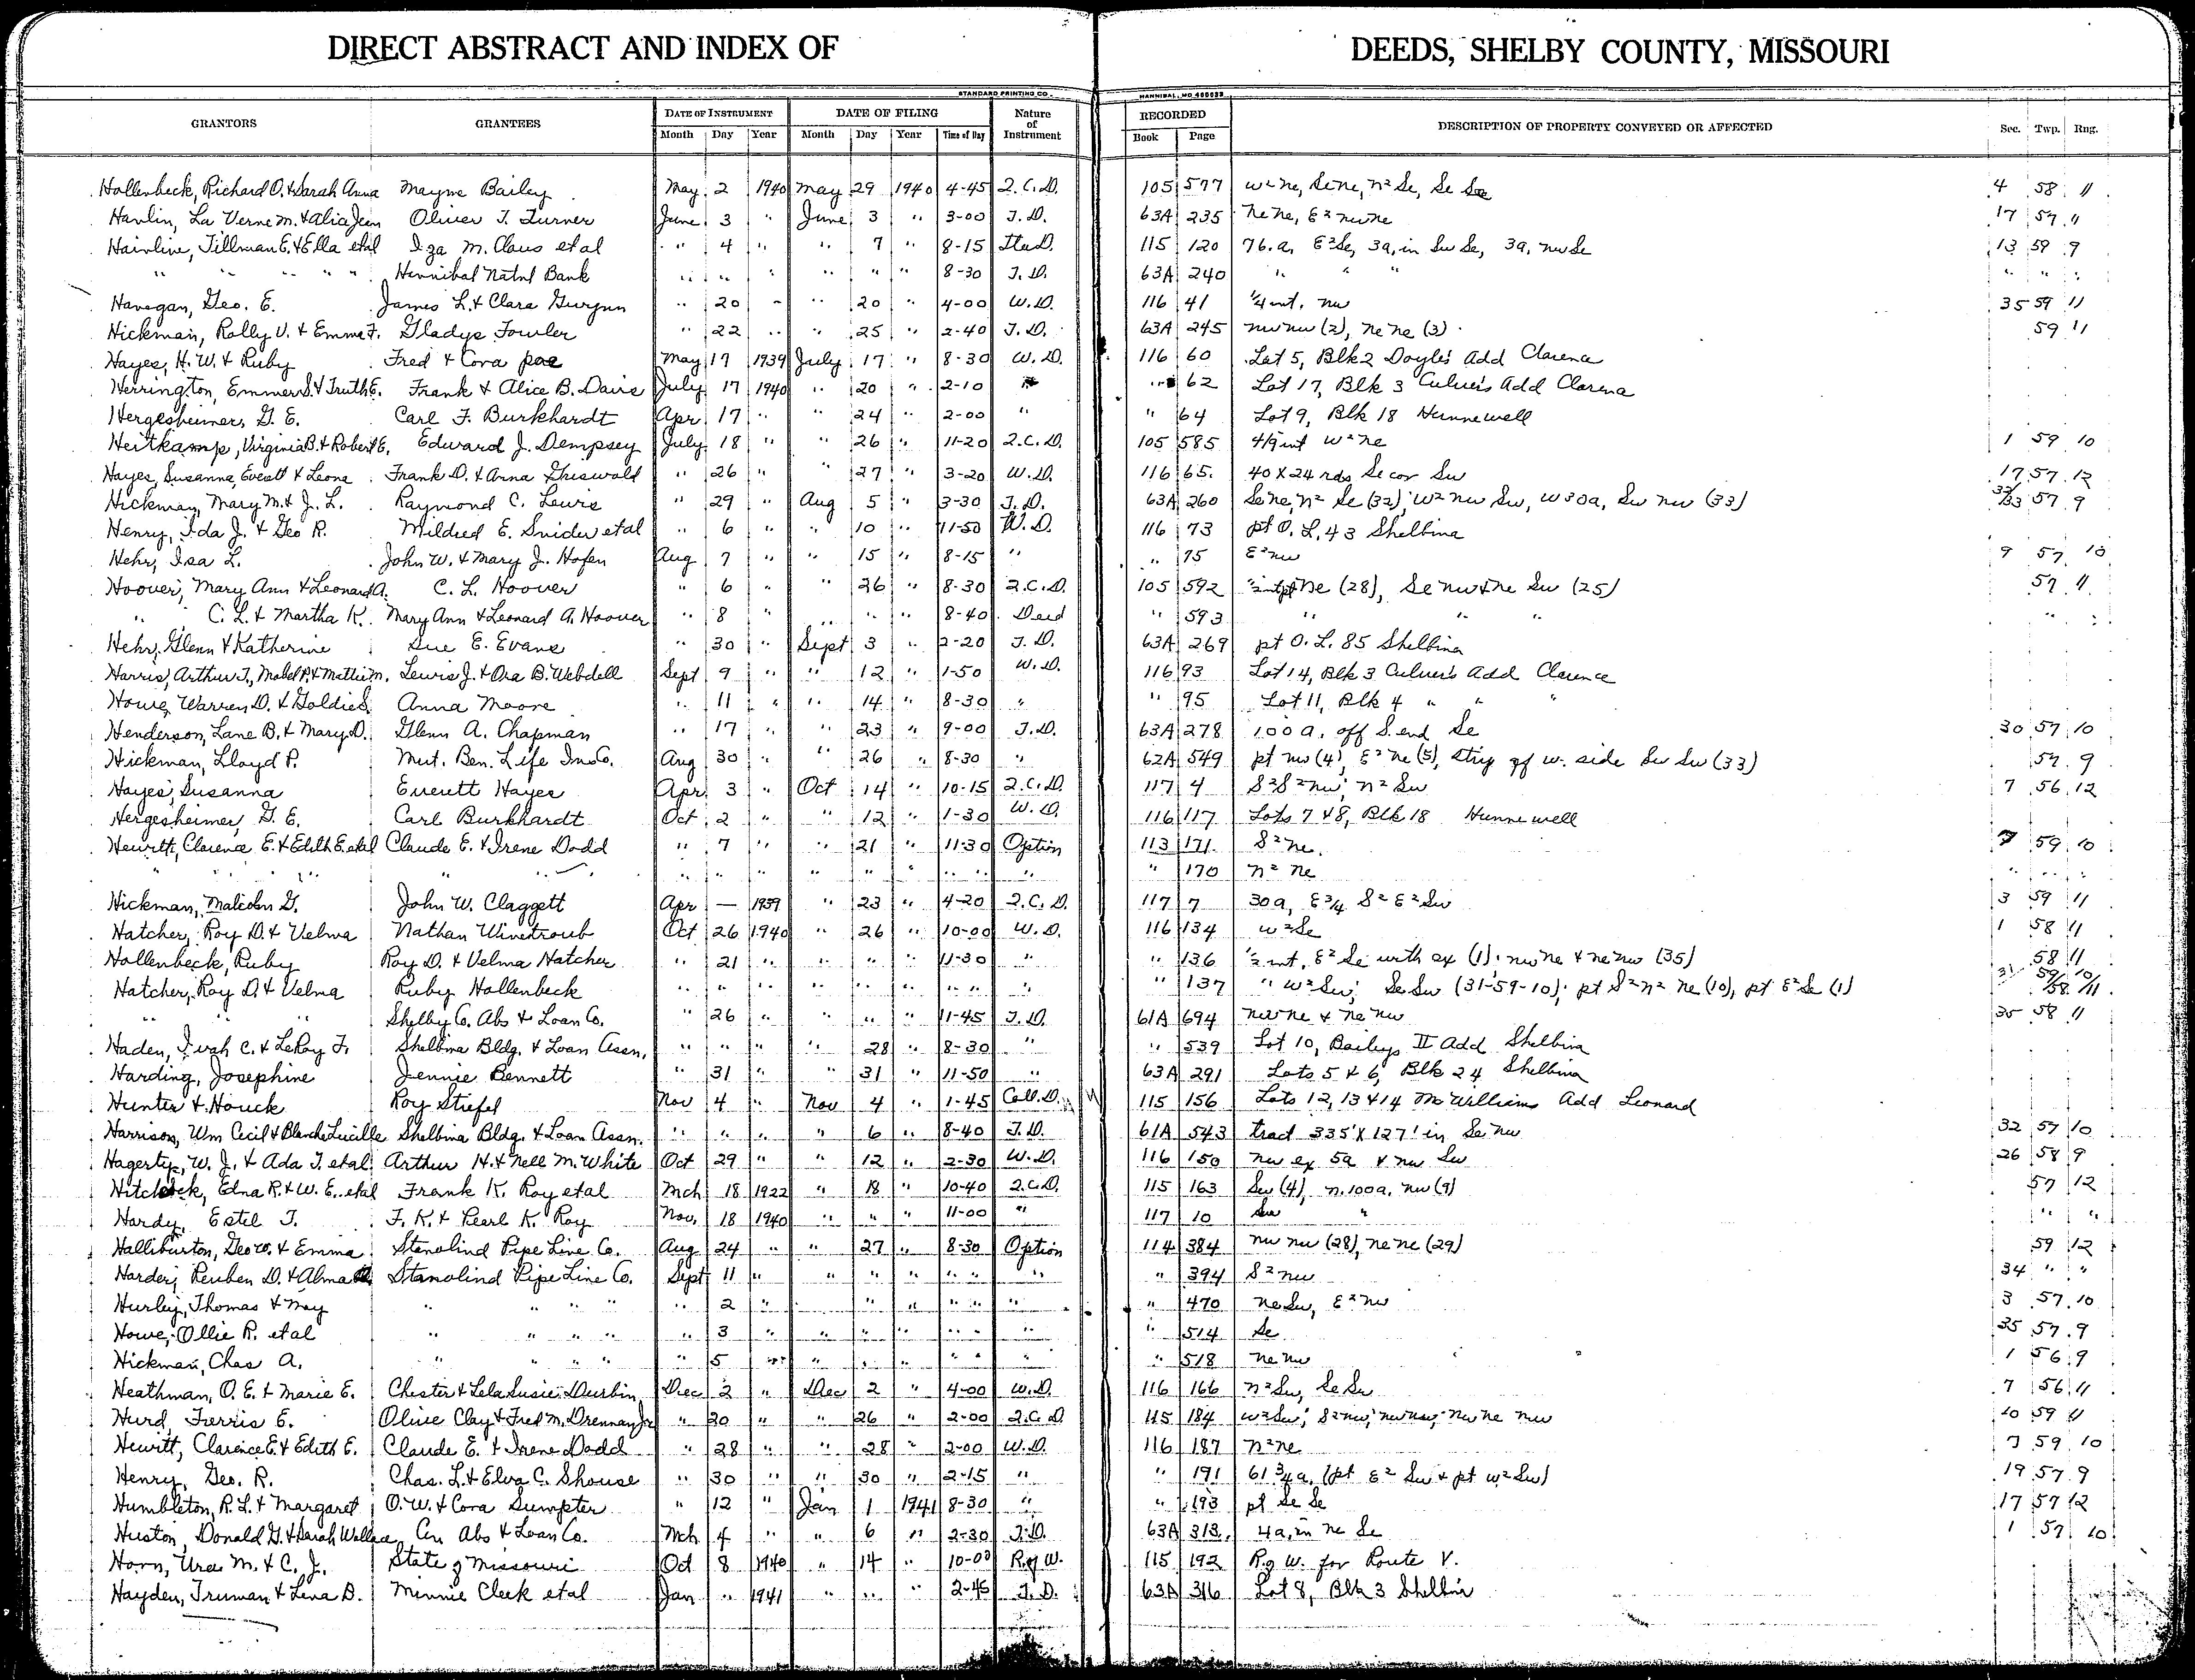 DIRECT ABSTRACT AND INDEX OF DEEDS, SHELBY COUNTY, MISSOURI
STANDARD PRINTING CO. HANNIBAL, MO
GRANTORS GRANTEES DATE OF INSTRUMENT DATE OF FILING Nature of Instrument RECORDED DESCRIPTION OF PROPERTY CONVEYED OR AFFECTED Sec. Twp. Rng.
Month Day Year Month Day Year Time of Day Book Page
Hollenbeck, Richard O. & Sarah Anna Mayme Bailey May 2 1940 May 29 1940 4-45 Q.C.D. 105 577 W² ne, Se ne, n² Se, Se Se 4 58 11
Hanlin, La Verne M. & Alice Jean Oliver T. Turner June 3 " June 3 " 3-00 T.D. 63A 235 ne ne, E² nw ne 17 59 11
Hainline, Tillman E. & Ella etal Iza M. Claus etal " 4 " " 7 " 8-15 115 120 76. a, E² Se, 3a, in Sw Se, 3a, nw Se 13 59 9
" " " " " Hannibal Natnl Bank " " " " " " 8-30 T.D. 63A 240 " " " " " "
Hanegan, Geo. E. James L. & Clara " 20 " " 20 " 4-00 W.D. 116 41 ¼ int. nw 35 59 11
Hickman, Rolly V. & Emma F. Gladys Fowler " 22 " " 25 " 2-40 T.D. 63A 245 nw nw (2), ne ne (3) 59 11
Hayes, H. W. & Ruby Fred & Cora poe May 17 1939 July 17 " 8-30 W.D. 116 60 Lot 5, Blk 2 Doyle's Add Clarence
Herrington, Emmer S. & Truth E. Frank & Alice B. Davis July 17 1940 " 20 " 2-10 " " 62 Lot 17, Blk 3 Culver's Add Clarence
Hergesheimer, G. E. Carl F. Burkhardt Apr 17 " " 24 " 2-00 " " 64 Lot 9, Blk 18 Hunnewell
Heitkamp, Virginia B. & Robert E. Edward J. Dempsey July 18 " " 26 " 11-20 Q.C.D. 105 585 4/9 int W² ne 1 59 10
Hayes, Susanna, Everett & Leona Frank D. & Anna Griswold " 26 " " 27 " 3-20 W.D. 116 65. 40 X 24 rds Se cor Sw 17 57 12
Hickman, Mary M. & J. L. Raymond C. Lewis " 29 " Aug 5 " 3-30 T.D. 63A 260 Se ne, n² Se (32), W² nw Sw, W 30a, Sw nw (33) 32/33 57 9
Henry, Ida J. & Geo R. Mildred E. Snider etal " 6 " " 10 " 11-50 W.D. 116 73 pt O. L. 43 Shelbina
Hehr, Isa L. John W. & Mary J. Hofen Aug 7 " " 15 " 8-15 " " 75 E² nw 9 57 10
Hoover, Mary Ann & Leonard A. C. L. Hoover " 6 " " 26 " 8-30 Q.C.D. 105 592 ½ int pt Ne (28), Se nw & ne Sw (25) 57 11
" C. L. & Martha K. Mary Ann & Leonard A. Hoover " 8 " " " " 8-40 Deed " 593 " " " " "
Hehr, Glenn & Katherine Sue E. Evans " 30 " Sept 3 " 2-20 T.D. 63A 269 pt O. L. 85 Shelbina
Harris, Arthur T., Mabel P. & Mattie M. Lewis J. & Ora B. Webdell Sept 9 " " 12 " 1-50 W.D. 116 93 Lot 14, Blk 3 Culver's Add Clarence
Howe, Warren D. & Goldie S. Anna Moore " 11 " " 14 " 8-30 " " 95 Lot 11, Blk 4 " " "
Henderson, Lane B. & Mary D. Glenn A. Chapman " 17 " " 23 " 9-00 T.D. 63A 278 100 a. off S. end Se 30 57 10
Hickman, Lloyd P. Mut. Ben. Life Ins Co. Aug 30 " " 26 " 8-30 " 62A 549 pt nw (4), E² ne (5), strip off w. side Sw Sw (33) 57 9
Hayes, Susanna Everett Hayes Apr. 3 " Oct 14 " 10-15 Q.C.D. 117 4 S² S² nw, n² Sw 7 56 12
Hergesheimer, G. E. Carl Burkhardt Oct 2 " " 12 " 1-30 W.D. 116 117 Lots 7 & 8, Blk 18 Hunnewell
Hewitt, Clarence E. & Edith E. etal Claude E. & Irene Dodd " 7 " " 21 " 11-30 Option 113 171 S² ne. 7 59 10
" " " " " " " " " " " " " " " 170 n² ne " " "
Hickman, Malcolm G. John W. Claggett Apr — 1939 " 23 " 4-20 Q.C.D. 117 7 30a, E¾ S² E² Sw 3 59 11
Hatcher, Roy D. & Velma Nathan Winetroub Oct 26 1940 " 26 " 10-00 W.D. 116 134 W² Se 1 58 11
Hollenbeck, Ruby Roy D. & Velma Hatcher " 21 " " " " 11-30 " " 136 ½ int. E² Se with ex (1), nw ne & ne nw (35) 58 11
Hatcher, Roy D. & Velma Ruby Hollenbeck " " " " " " " " " 137 " W² Sw, Se Sw (31-59-10), pt S² n² ne (10), pt E² Se (1) 31 59/58 10/11
" " " Shelby Co. Abs & Loan Co. " 26 " " " " 11-45 T.D. 61A 694 nw ne & ne nw 35 58 11
Haden, Ivah C. & LeRoy F. Shelbina Bldg. & Loan Assn. " " " " 28 " 8-30 " " 539 Lot 10, Baileys II Add Shelbina
Harding, Josephine Jennie Bennett " 31 " " 31 " 11-50 " 63A 291 Lots 5 & 6, Blk 24 Shelbina
Hunter & Houck Roy Stiefel Nov 4 " Nov 4 " 1-45 Coll. D. 115 156 Lots 12, 13 & 14 McWilliams Add Leonard
Harrison, Wm Cecil & Blanche Lucille Shelbina Bldg. & Loan Assn. " " " " 6 " 8-40 T.D. 61A 543 tract 335' X 127' in Se nw 32 57 10
Hagerty, W. J. & Ada T. etal Arthur H. & Nell M. White Oct 29 " " 12 " 2-30 W.D. 116 150 nw ex 5a & nw Sw 26 58 9
Hitchcock, Edna R. & W. E. etal Frank K. Roy etal Mch 18 1922 " 18 " 10-40 Q.C.D. 115 163 Sw (4), n. 100a. nw (9) 57 12
Hardy, Estel T. F. K. & Pearl K. Roy Nov. 18 1940 " " " 11-00 " 117 10 Sw " " "
Halliburton, Geo W. & Emma Stanolind Pipe Line Co. Aug 24 " " 27 " 8-30 Option 114 384 nw nw (28), ne ne (29) 59 12
Harder, Reuben D. & Alma Stanolind Pipe Line Co. Sept 11 " " " " " " " 394 S² nw 34 " "
Hurley, Thomas & May " " " " " 2 " " " " " " 470 ne Sw, E² nw 3 57 10
Howe, Ollie R. etal " " " " " 3 " " " " " " " 514 Se 35 57 9
Hickman, Chas A. " " " " " 5 " " " " " " 518 ne nw 1 56 9
Heathman, O. E. & Marie E. Chester & Lela Susie Durbin Dec 2 " Dec 2 " 4-00 W.D. 116 166 n² Sw, Se Sw 7 56 11
Hurd, Ferris E. Olive Clay & Fred M. Drennan Jr " 20 " " 26 " 2-00 Q.C.D 115 184 W² Sw, S² nw, nw nw, nw ne nw 10 59 11
Hewitt, Clarence E. & Edith E. Claude E. & Irene Dodd " 28 " " 28 " 2-00 W.D. 116 187 n² ne 7 59 10
Henry, Geo. R. Chas. L. & Elva C. Shouse " 30 " " 30 " 2-15 " " 191 61¾ a. (pt E² Sw & pt W² Sw) 19 57 9
Humbleton, R. L. & Margaret O. W. & Cora Sumpter " 12 " Jan 1 1941 8-30 " " 193 pt Se Se 17 57 12
Huston, Donald G. & Sarah Wallace Abs & Loan Co. Mch 4 " " 6 " 2-30 T.D. 63A 313 4a, in ne Se 1 57 10
Horn, Ura M. & C. J. State of Missouri Oct 8 1940 " 14 " 10-00 R. of W. 115 192 R. of W. for Route V.
Hayden, Truman & Lena D. Minnie Cleek etal Jan " 1941 " " " 2-45 T.D. 63A 316 Lot 8, Blk 3 Shelbin